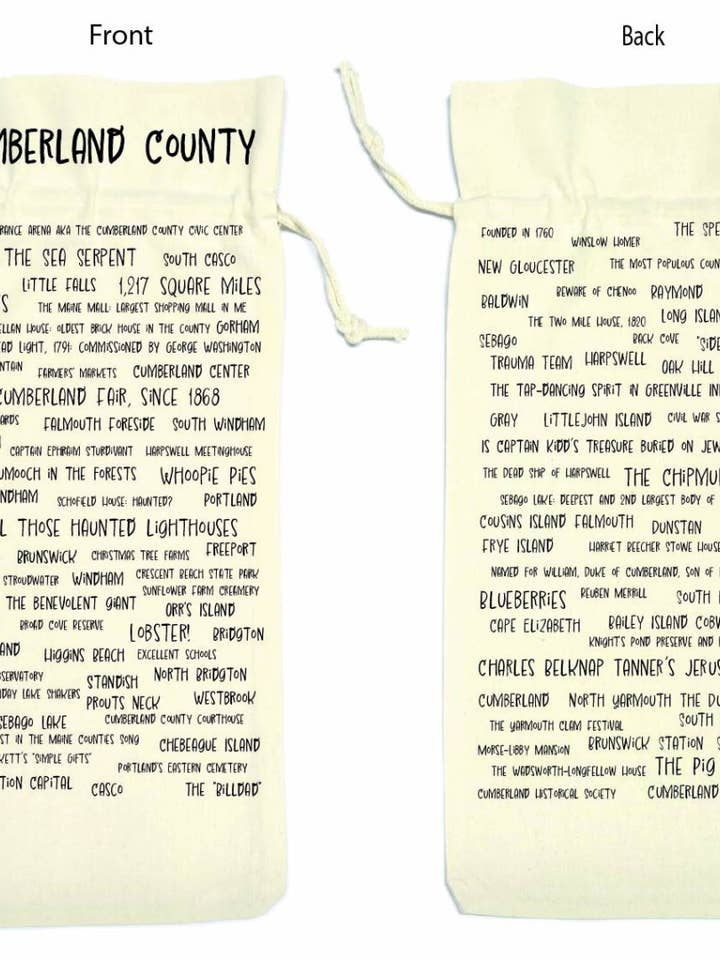 Front
Back
BERLAND COUNTY
ARENA AKA THE CUMBERLAND COUNTY CIVIC CENTER
THE SEA SERPENT SOUTH CASCO
LITTLE FALLS 1,217 SQUARE MILES
THE MAINE MALL: LARGEST SHOPPING MALL IN ME
HOUSE: OLDEST BRICK HOUSE IN THE COUNTY GORHAM
LIGHT, 1791: COMMISSIONED BY GEORGE WASHINGTON
FARMERS' MARKETS CUMBERLAND CENTER
CUMBERLAND FAIR, SINCE 1868
FALMOUTH FORESIDE SOUTH WINDHAM
CAPTAIN EPHRAIM STURDIVANT HARPSWELL MEETINGHOUSE
MOOCH IN THE FORESTS WHOOPIE PIES
NDHAM SCHOFIELD HOUSE: HAUNTED? PORTLAND
L THOSE HAUNTED LIGHTHOUSES
BRUNSWICK CHRISTMAS TREE FARMS FREEPORT
STROUDWATER WINDHAM CRESCENT BEACH STATE PARK
SUNFLOWER FARM CREAMERY
THE BENEVOLENT GIANT ORR'S ISLAND
BROAD COVE RESERVE LOBSTER! BRIDGTON
AND HIGGINS BEACH EXCELLENT SCHOOLS
SERVATORY STANDISH NORTH BRIDGTON
DAY LAKE SHAKERS PROUTS NECK WESTBROOK
SEBAGO LAKE CUMBERLAND COUNTY COURTHOUSE
ST IN THE MAINE COUNTIES SONG CHEBEAGUE ISLAND
KETT'S "SIMPLE GIFTS" PORTLAND'S EASTERN CEMETERY
TION CAPITAL CASCO THE "BILLDAD"
FOUNDED IN 1760 WINSLOW HOMER THE SPE
NEW GLOUCESTER THE MOST POPULOUS COUN
BALDWIN BEWARE OF CHENOO RAYMOND
THE TWO MILE HOUSE, 1820 LONG ISLAN
SEBAGO BACK COVE "SIDE
TRAUMA TEAM HARPSWELL OAK HILL
THE TAP-DANCING SPIRIT IN GREENVILLE IN
GRAY LITTLEJOHN ISLAND CIVIL WAR S
IS CAPTAIN KIDD'S TREASURE BURIED ON JEW
THE DEAD SHIP OF HARPSWELL THE CHIPMU
SEBAGO LAKE: DEEPEST AND 2ND LARGEST BODY OF
COUSINS ISLAND FALMOUTH DUNSTAN
FRYE ISLAND HARRIET BEECHER STOWE HOUSE
NAMED FOR WILLIAM, DUKE OF CUMBERLAND, SON OF
BLUEBERRIES REUBEN MERRILL SOUTH
CAPE ELIZABETH BAILEY ISLAND COBW
KNIGHT'S POND PRESERVE AND
CHARLES BELKNAP TANNER'S JERUS
CUMBERLAND NORTH YARMOUTH THE DU
THE YARMOUTH CLAM FESTIVAL SOUTH
MORSE-LIBBY MANSION BRUNSWICK STATION S
THE WADSWORTH-LONGFELLOW HOUSE THE PIG
CUMBERLAND HISTORICAL SOCIETY CUMBERLAND